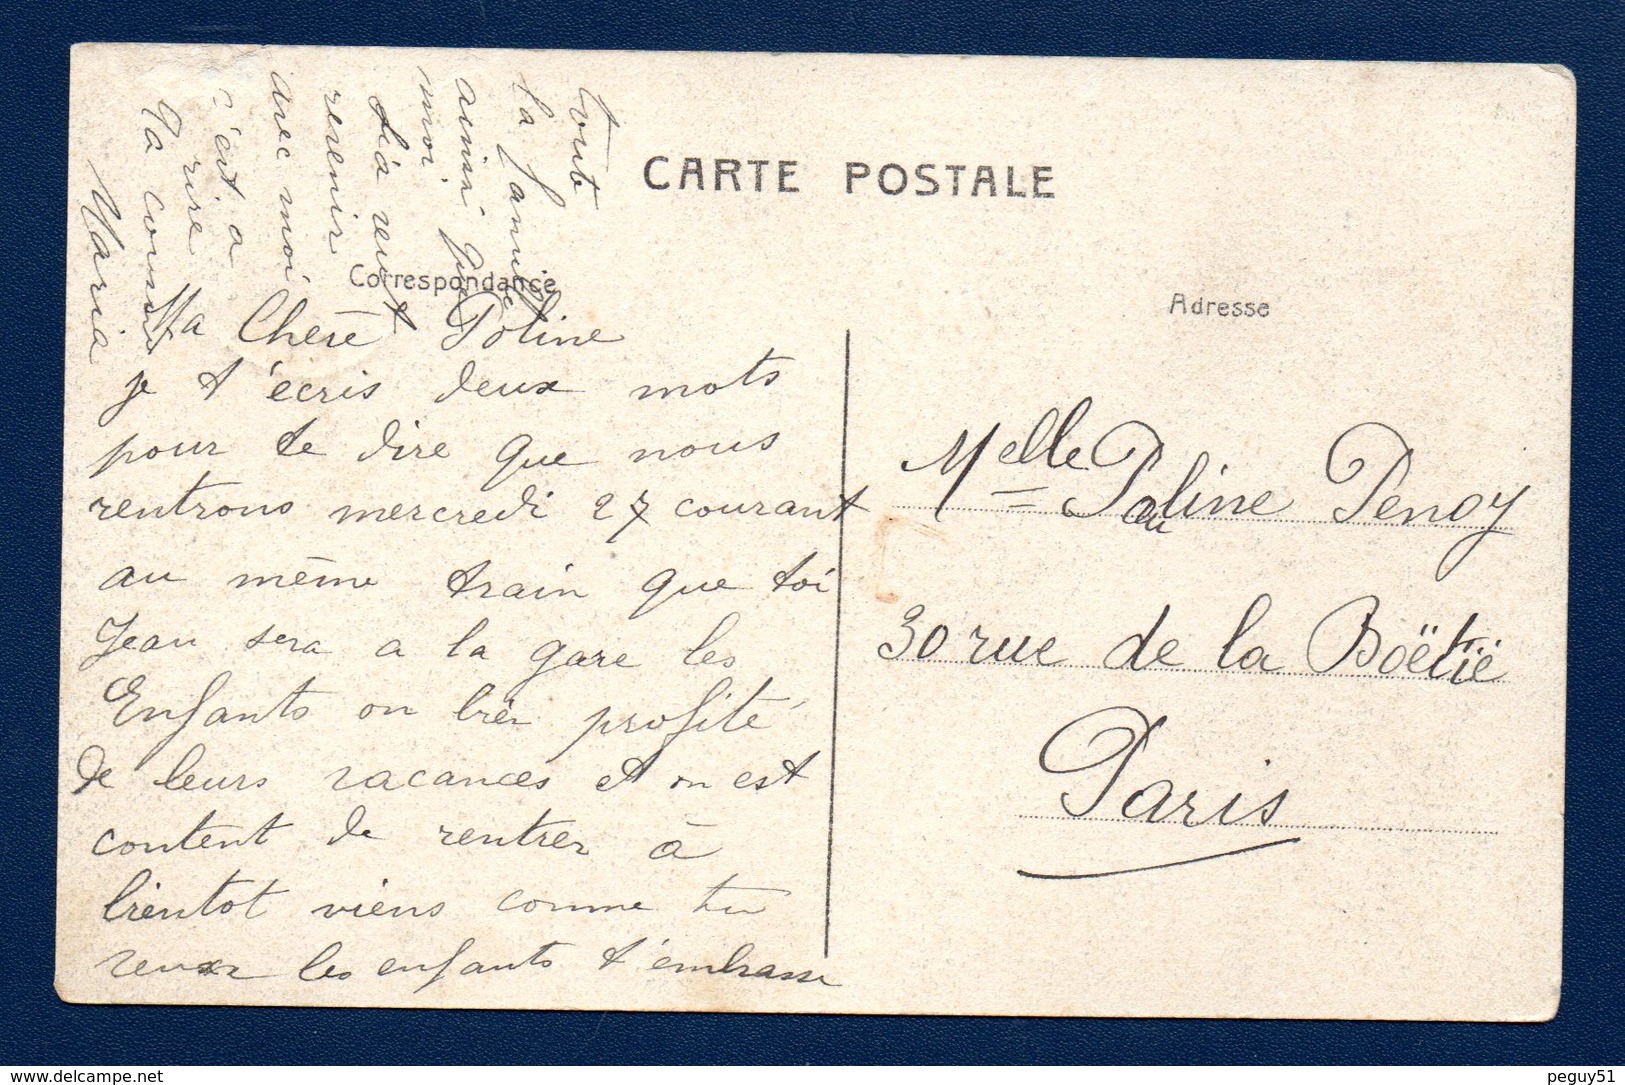 CARTE POSTALE
Correspondance
Adresse
Ma Chère Poline
je t'écris deux mots
pour te dire que nous
rentrons mercredi 27 courant
au même train que toi
Jean sera a la gare les
Enfants on bien profité
de leurs vacances et on est
content de rentrer à
bientot viens comme tu
veux les enfants t'embrasse
toute
la famille
ainsi que
moi
Léa veut
revenir
avec moi
c'est a
rire
Ta cousine
Maria
Melle Pauline Penoy
30 rue de la Boëtië
Paris
delcampe.net
peguy51